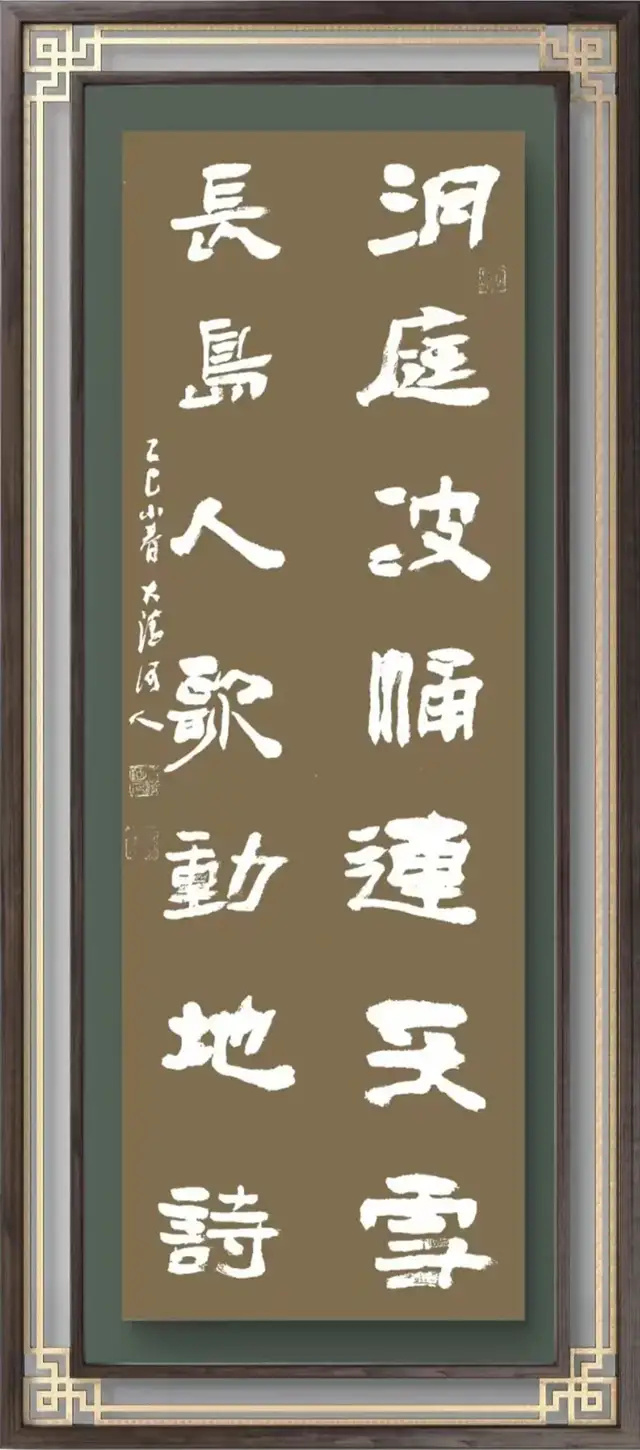 洞庭波涌連天雪
長島人歌動地詩
乙巳小春 大清河人